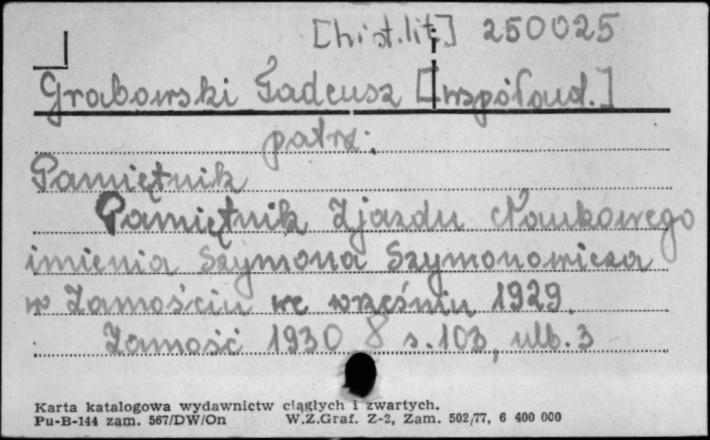 [hist.lit.] 250025
Grabowski Tadeusz [współaud.]
patrz:
Pamiętnik
Pamiętnik Zjazdu Naukowego
imienia Szymona Szymonowicza
w Zamościu we wrześniu 1929.
Zamość 1930 8 s. 103, ulb. 3
Karta katalogowa wydawnictw ciągłych i zwartych.
Pu-B-144 zam. 567/DW/On W.Z.Graf. Z-2, Zam. 502/77, 6 400 000